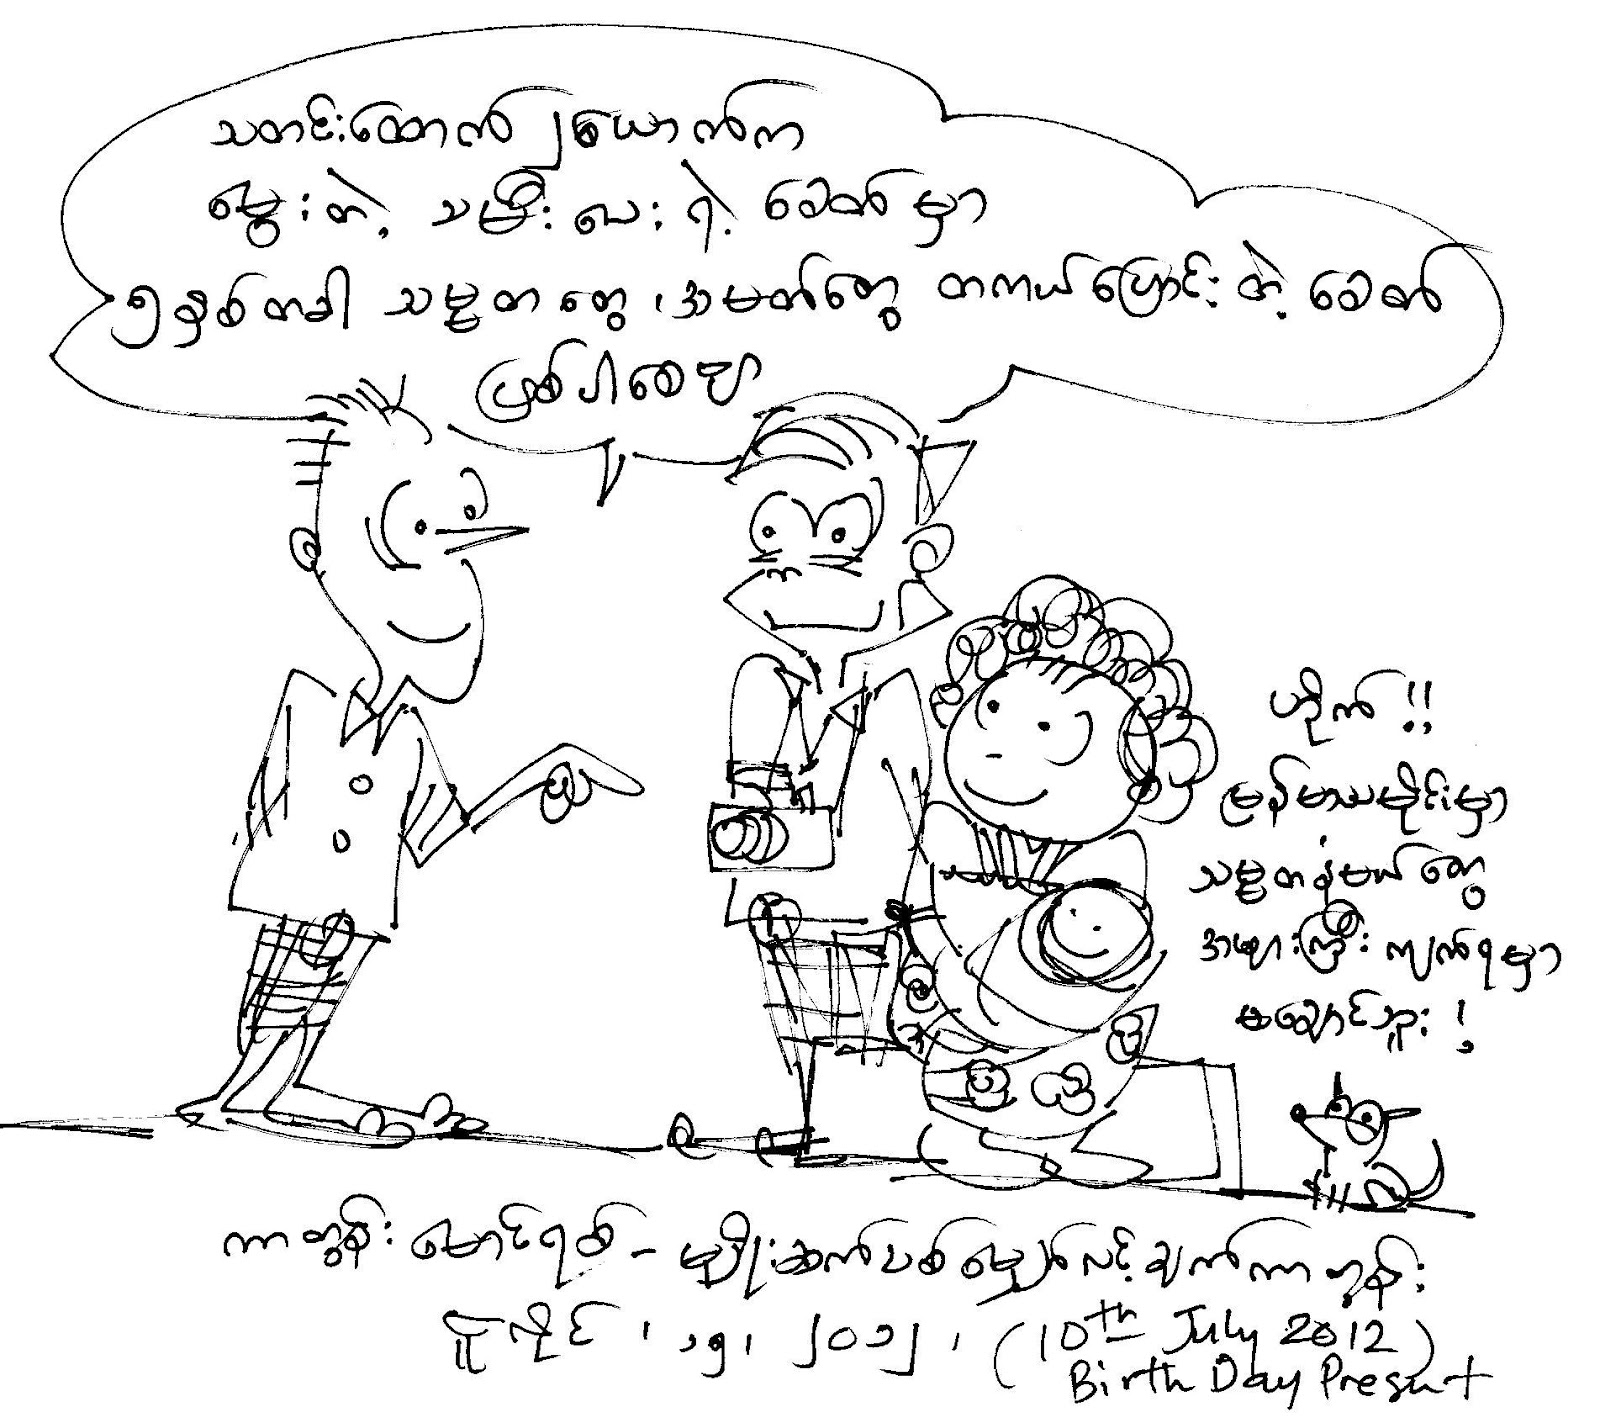 သတင်းထောက် ၂ ယောက်က
မွေးတဲ့ သမီးလေးရဲ့ ခေတ်မှာ
၅ နှစ်တခါ သမ္မတတွေ ၊ အမတ်တွေ တကယ်ပြောင်းတဲ့ ခေတ်
ဖြစ်ပါစေဗျာ
ဟိုက် !!
မြန်မာသမိုင်းမှာ
သမ္မတနံမယ်တွေ
အများကြီး ကျက်ရမှာ
မချောင်ဘူး !
ကာတွန်း မောင်ရစ် - မျိုးဆက်သစ်မျှော်လင့်ချက်ကာတွန်း
ဇူလိုင် ၊ ၁၅၊ ၂၀၁၂ ၊ (10th July 2012)
Birth Day Present